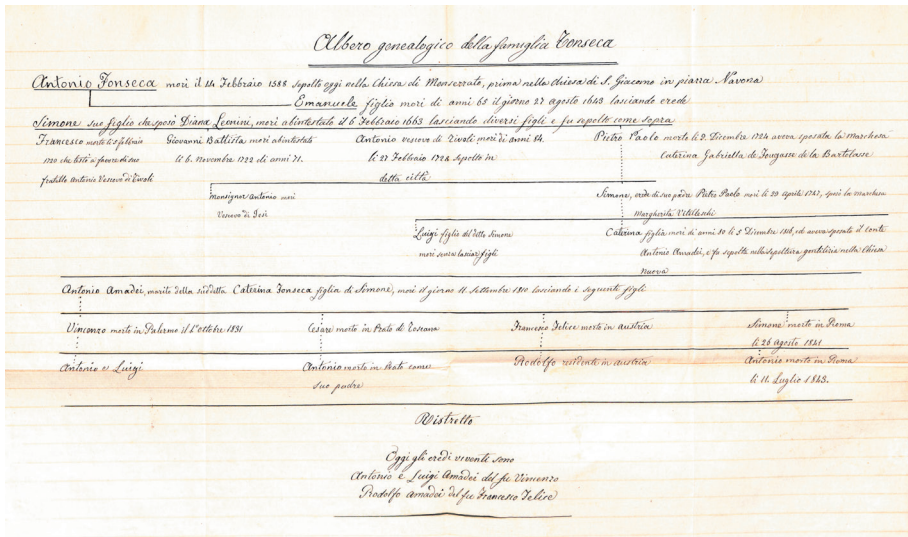 Albero genealogico della famiglia Fonseca
Antonio Fonseca morì il 14 Febbraio 1588 sepolto oggi nella Chiesa di Monserrato, prima nella chiesa di S. Giacomo in piazza Navona
Emanuele figlio morì di anni 65 il giorno 27 agosto 1643 lasciando erede
Simone suo figlio che sposò Diana Leonini, morì abintestato il 6 Febbraio 1663 lasciando diversi figli e fu sepolto come sopra
Francesco morto li 2 febbraio
1720 che testò a favore di suo
fratello Antonio Vescovo di Tivoli
Giovanni Battista morì abintestato
li 6. Novembre 1722 di anni 71.
Antonio vescovo di Tivoli morì di anni 84.
li 27 Febbraio 1724 sepolto in
detta città
Pietro Paolo morto li 9. Dicembre 1724 aveva sposata la Marchesa
Caterina Gabriella de Fougasse de la Bartelasse
Monsignor Antonio morì
Vescovo di Jesi
Simone, erede di suo padre Pietro Paolo morì li 29 aprile 1747, sposò la marchesa
Margherita Vitelleschi
Luigi figlio del detto Simone
morì senza lasciar figli.
Caterina figlia morì di anni 80 li 5 Dicembre 1816, ed aveva sposato il conte
Antonio Amadei, e fu sepolta nella sepoltura gentilizia nella Chiesa
nuova
Antonio Amadei, marito della suddetta Caterina Fonseca figlia di Simone, morì il giorno 11. Settembre 1810 lasciando i seguenti figli
Vincenzo morto in Palermo il 1° ottobre 1831
Cesare morto in Prato di Toscana
Francesco Felice morto in austria
Simone morto in Roma
li 26 Agosto 1841
Antonio e Luigi
Antonio morto in Prato come
suo padre
Rodolfo residente in austria
Antonio morto in Roma
li 11 Luglio 1843.
Ristretto
Oggi gli eredi viventi sono
Antonio e Luigi Amadei del fu Vincenzo
Rodolfo Amadei del fu Francesco Felice